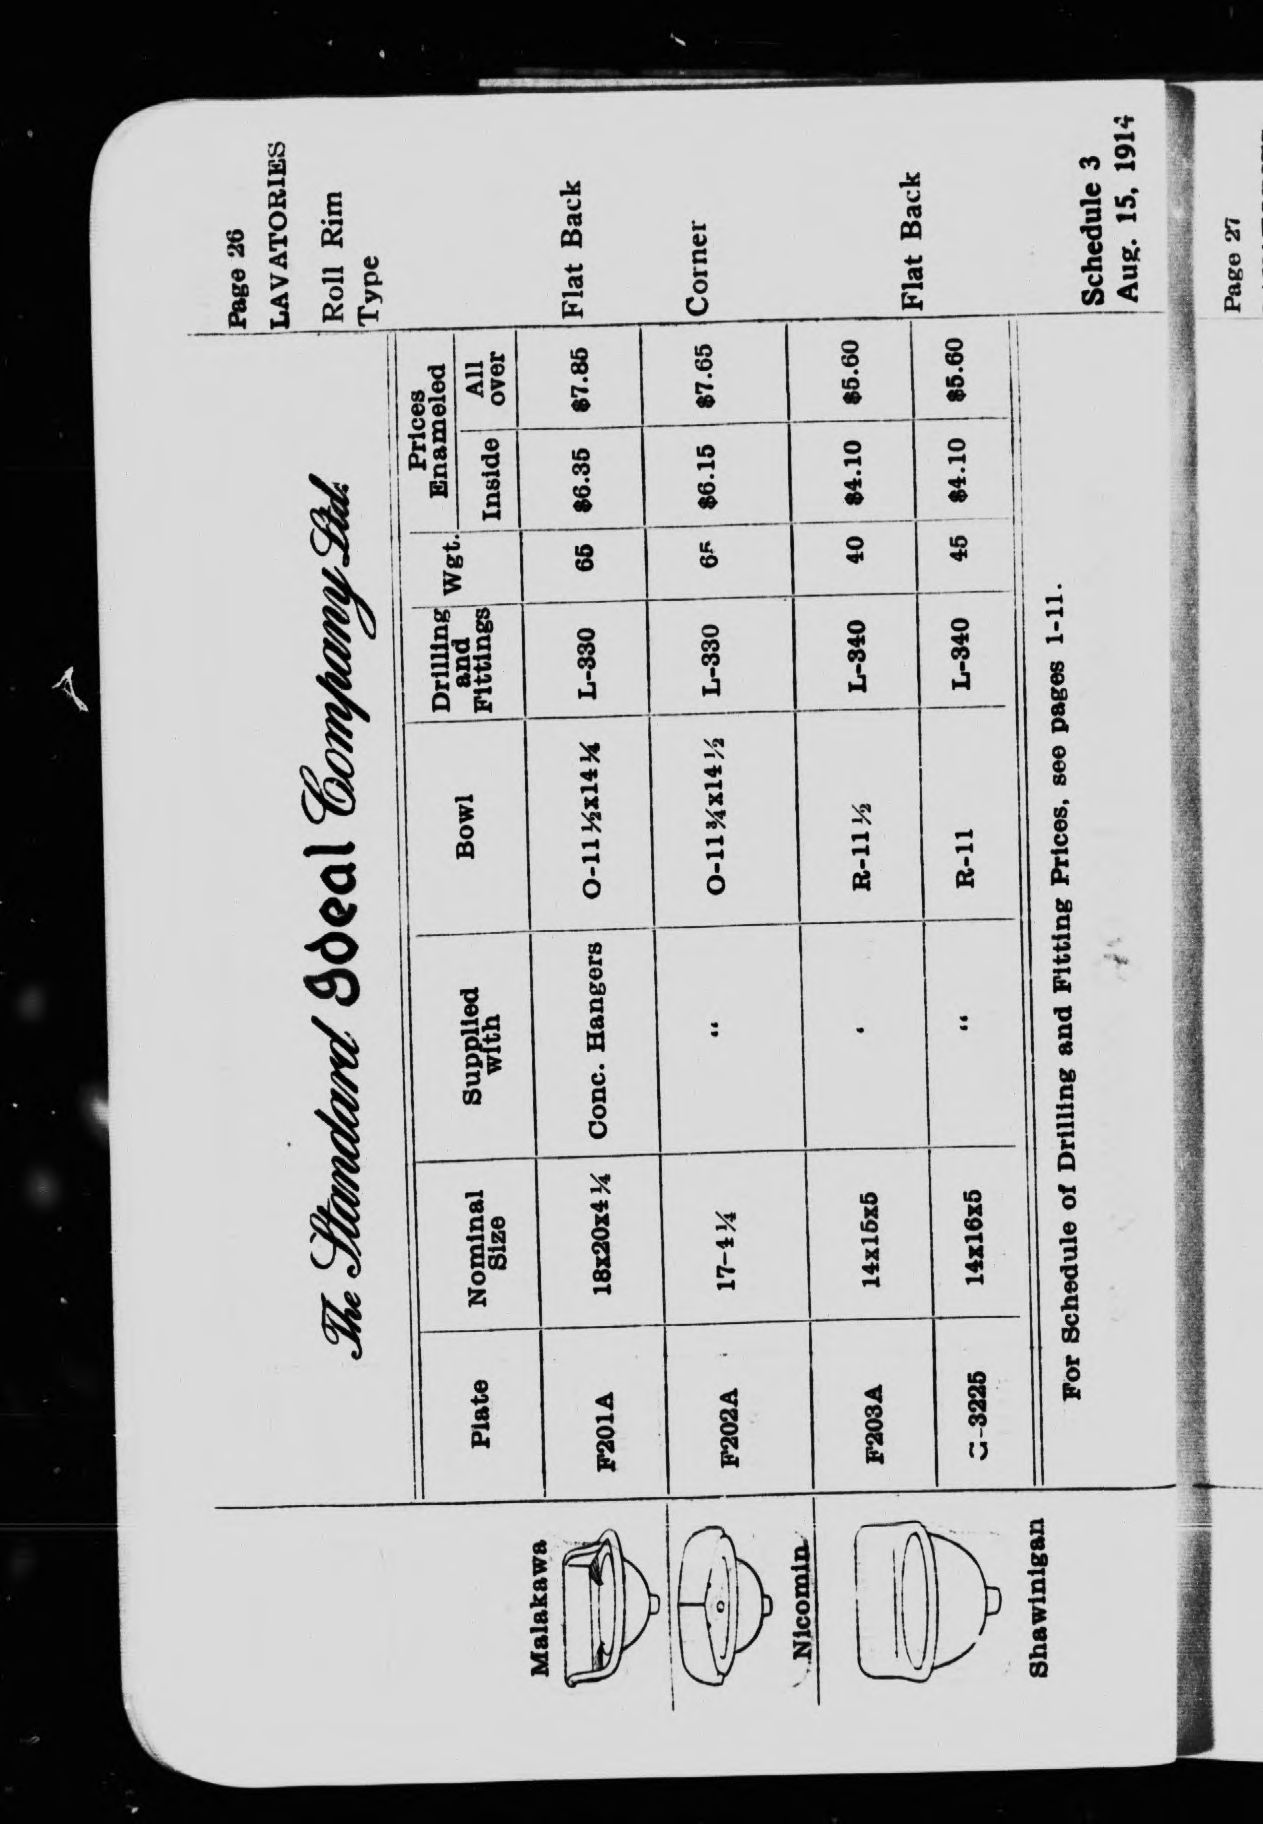 Page 26
LAVATORIES
Roll Rim
Type
The Standard Ideal Company Ltd.
Plate Nominal Size Supplied with Bowl Drilling and Fittings Wgt. Prices Enameled Inside All over
Malakawa
F201A 18x20x4¼ Conc. Hangers O-11½x14¼ L-330 65 $6.35 $7.85 Flat Back
F202A 17-4¼ " O-11¾x14½ L-330 65 $6.15 $7.65 Corner
Nicomin
F203A 14x15x5 ' R-11½ L-340 40 $4.10 $5.60
Flat Back
-3225 14x16x5 " R-11 L-340 45 $4.10 $5.60
Shawinigan
For Schedule of Drilling and Fitting Prices, see pages 1-11.
Schedule 3
Aug. 15, 1914
Page 27